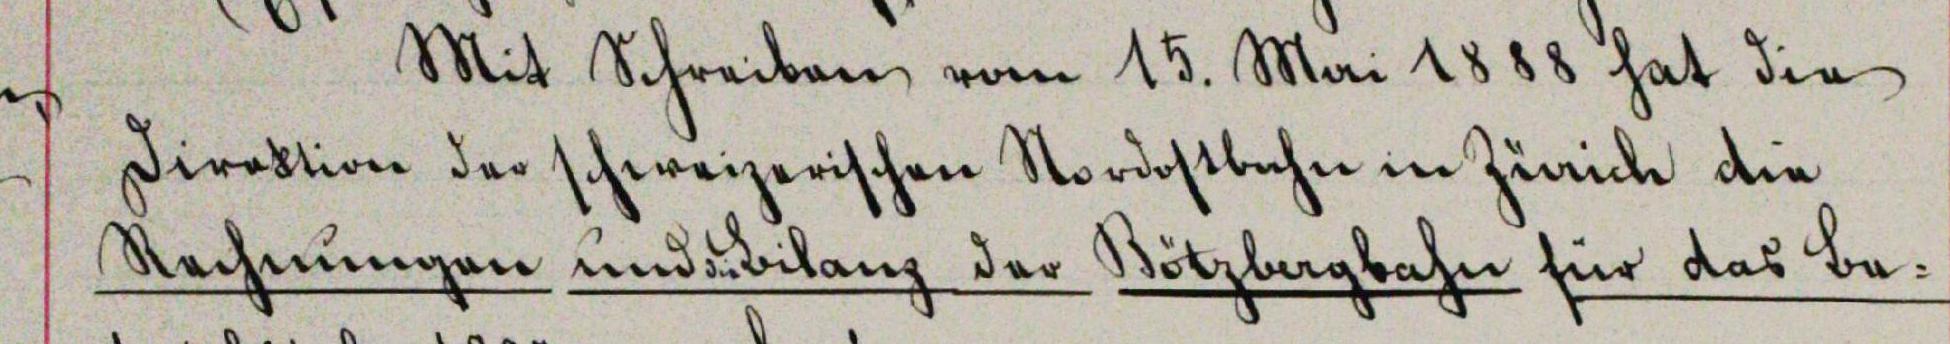 Mit Schreiben vom 15. Mai 1888 hat die
Direktion der schweizerischen Nordostbahn in Zürich die
Rechnungen und die Bilanz der Bötzbergbahn für das Be-